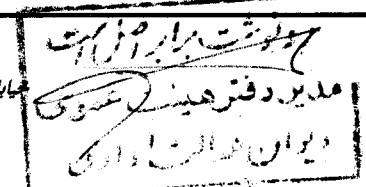 رونوشت برابر اصل است
مدیر دفتر هیئت عمومی
دیوان عدالت اداری